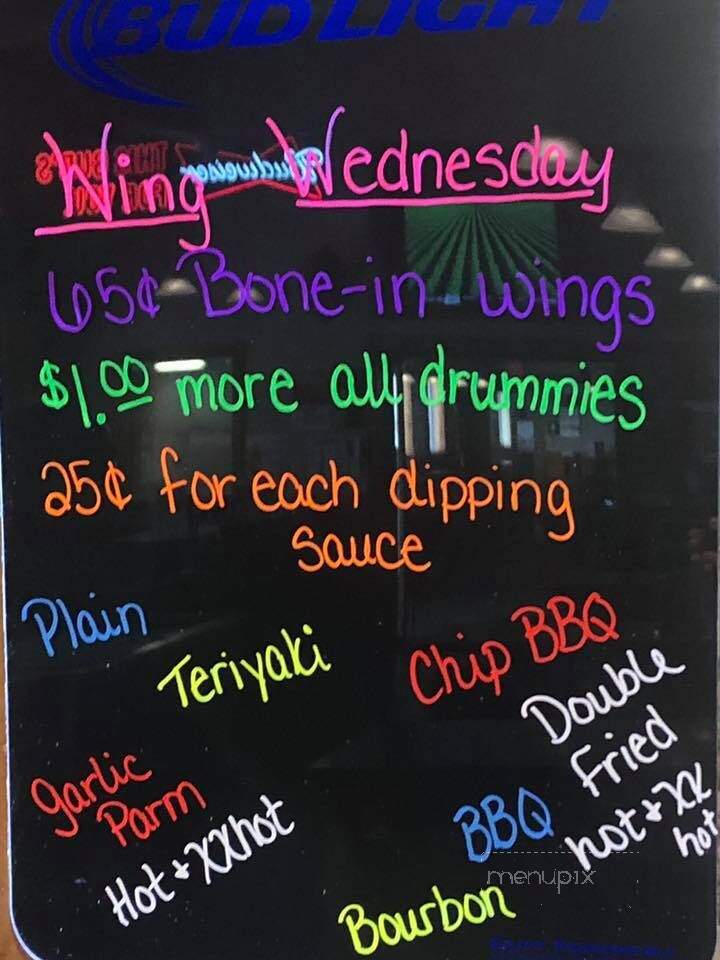 BUD LIGHT
Wing Wednesday
Budweiser
65¢ Bone-in wings
$1.00 more all drummies
25¢ for each dipping
sauce
Plain
Teriyaki
Chip BBQ
Double
Fried
hot + XX
hot
Garlic
Parm
Hot + XXhot
BBQ
menupix
Bourbon